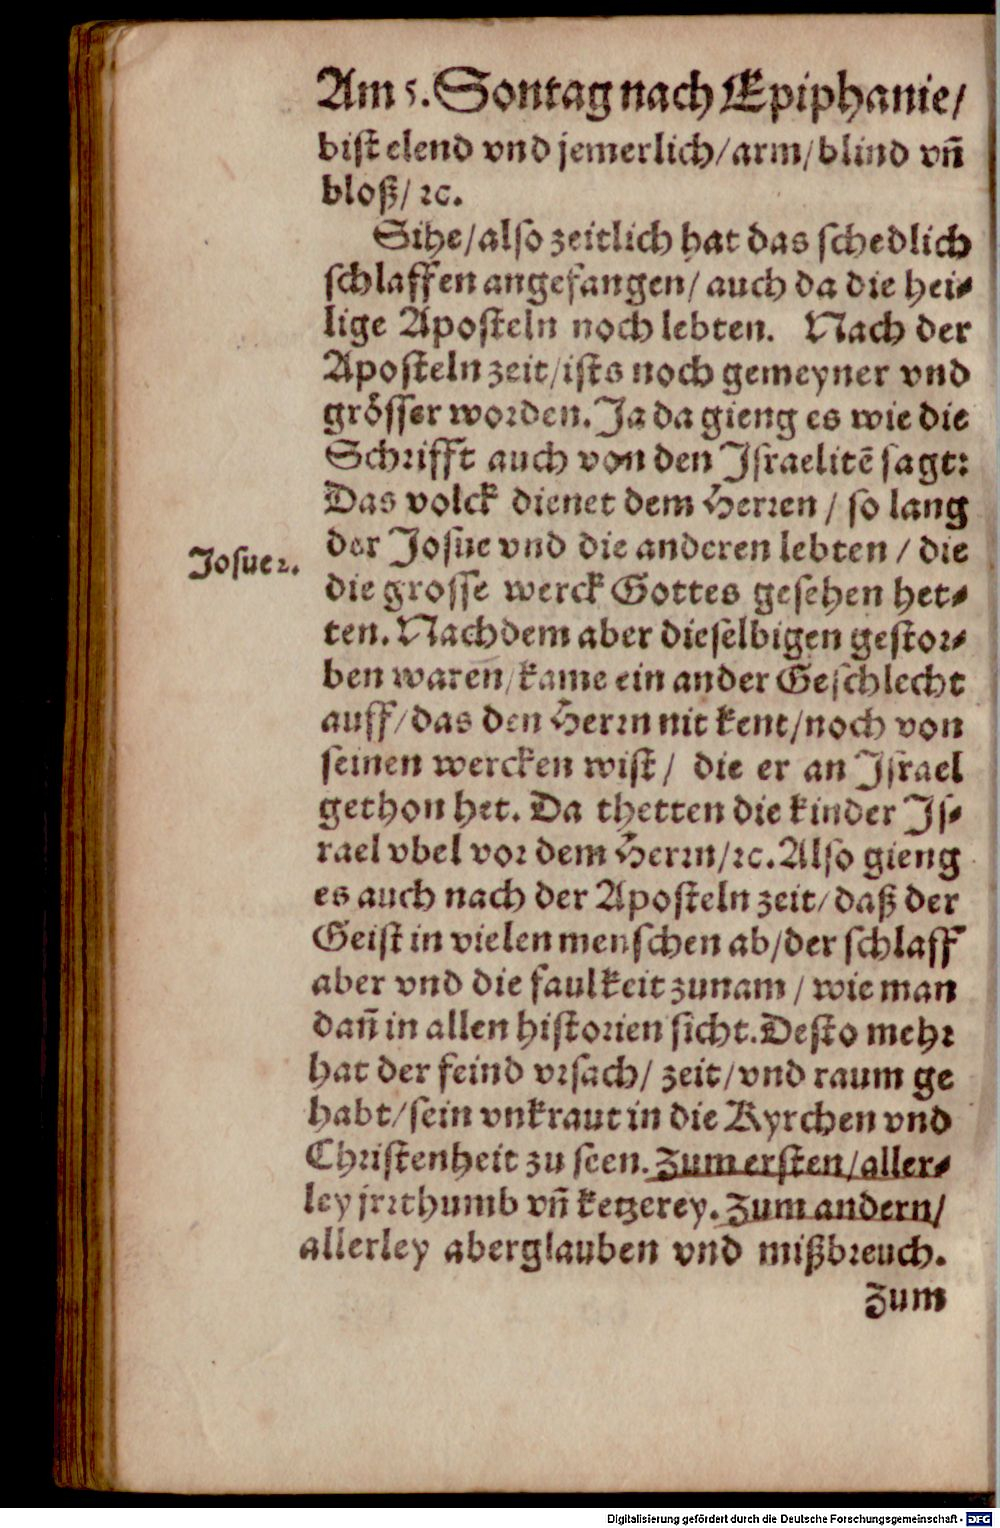 Am 5. Sontag nach Epiphanie/
bist elend vnd jemerlich/arm/blind vñ
bloß/ ꝛc.
Sihe/also zeitlich hat das schedlich
schlaffen angefangen/ auch da die hei⸗
lige Aposteln noch lebten. Nach der
Aposteln zeit/ists noch gemeyner vnd
grösser worden. Ja da gieng es wie die
Schrifft auch von den Jsraelitē sagt:
Das volck dienet dem Herren / so lang
der Josue vnd die anderen lebten / die
Josue 2.
die grosse werck Gottes gesehen het⸗
ten. Nachdem aber dieselbigen gestor⸗
ben waren/kame ein ander Geschlecht
auff/das den Herrn nit kent/noch von
seinen wercken wist/ die er an Jsrael
gethon het. Da thetten die kinder Js⸗
rael vbel vor dem Herrn/ꝛc. Also gieng
es auch nach der Aposteln zeit/daß der
Geist in vielen menschen ab/der schlaff
aber vnd die faulkeit zunam / wie man
dañ in allen historien sicht. Desto mehr
hat der feind vrsach/ zeit/vnd raum ge
habt/sein vnkraut in die Kyrchen vnd
Christenheit zu seen. Zum ersten/aller⸗
ley jrrthumb vñ ketzerey. Zum andern/
allerley aberglauben vnd mißbreuch.
Zum
Digitalisierung gefördert durch die Deutsche Forschungsgemeinschaft - DFG